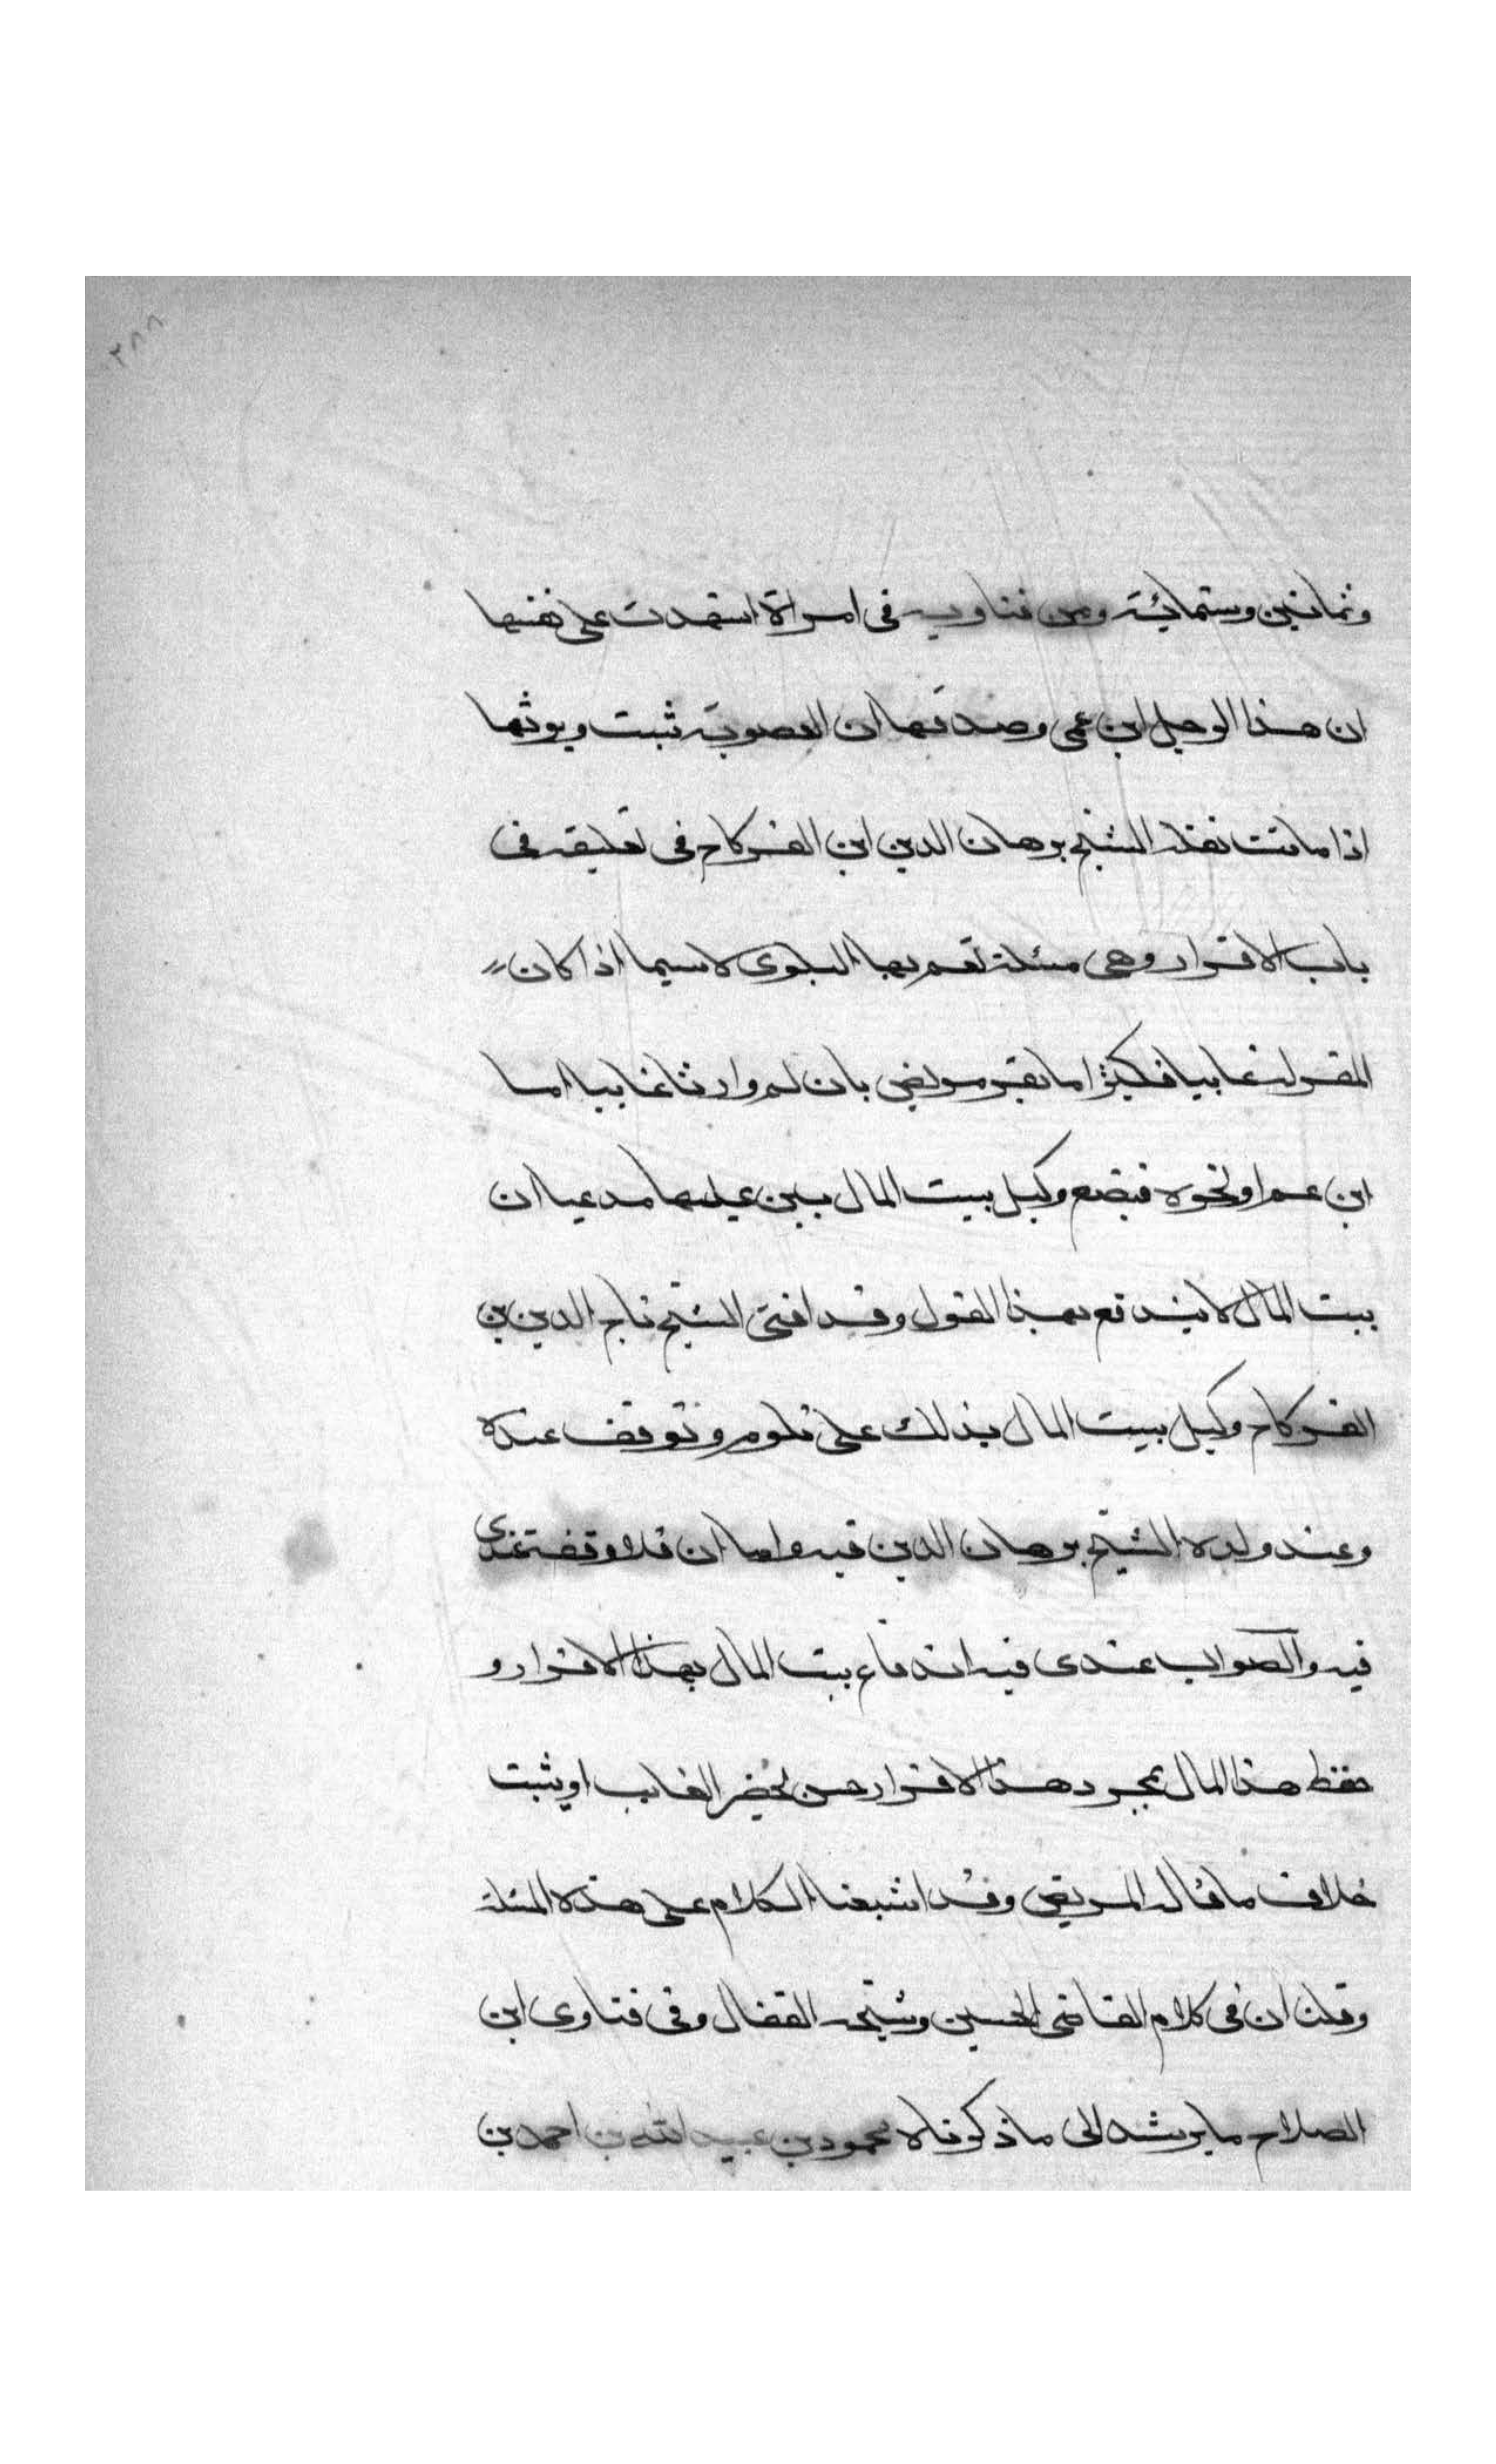 ٢٨٨
وثمانين وستمائة ومن فتاويه فى امراة اشهدت على نفسها
ان هذا الرجل ابن عمى وصدقها ان العصوبة ثبت ويرثها
اذا ماتت نقله الشيخ برهان الدين ابن الفركاح فى تعليقه فى
باب الاقرار وهى مسئلة تعم بها البلوى لاسيما اذا كان
المقر له غايبا فكثيرا ما يقر مريض بان له وارثا غايبا اما
ابن عم او نحوه فيضع وكيل بيت المال يده عليها مدعيا ان
بيت المال لا يندفع بهذا القول وقد افتى الشيخ تاج الدين بن
الفركاح وكيل بيت المال بذلك على تلوم وتوقف عنده
وعند ولده الشيخ برهان الدين فيه واما ان فلا وقفة عندى
فيه والصواب عندى فيه اندفاع بيت المال بهذا الاقرار و
حفظ هذا المال بمجرد هذا الاقرار حتى يحضر الغايب او يثبت
خلاف ما قاله المريض وقد اشبعنا الكلام على هذه المسئلة
وقلت ان فى كلام القاضى الحسين وشيخه القفال وفى فتاوى ابن
الصلاح ما يرشد الى ما ذكرناه محمود بن عبيد الله بن احمد بن